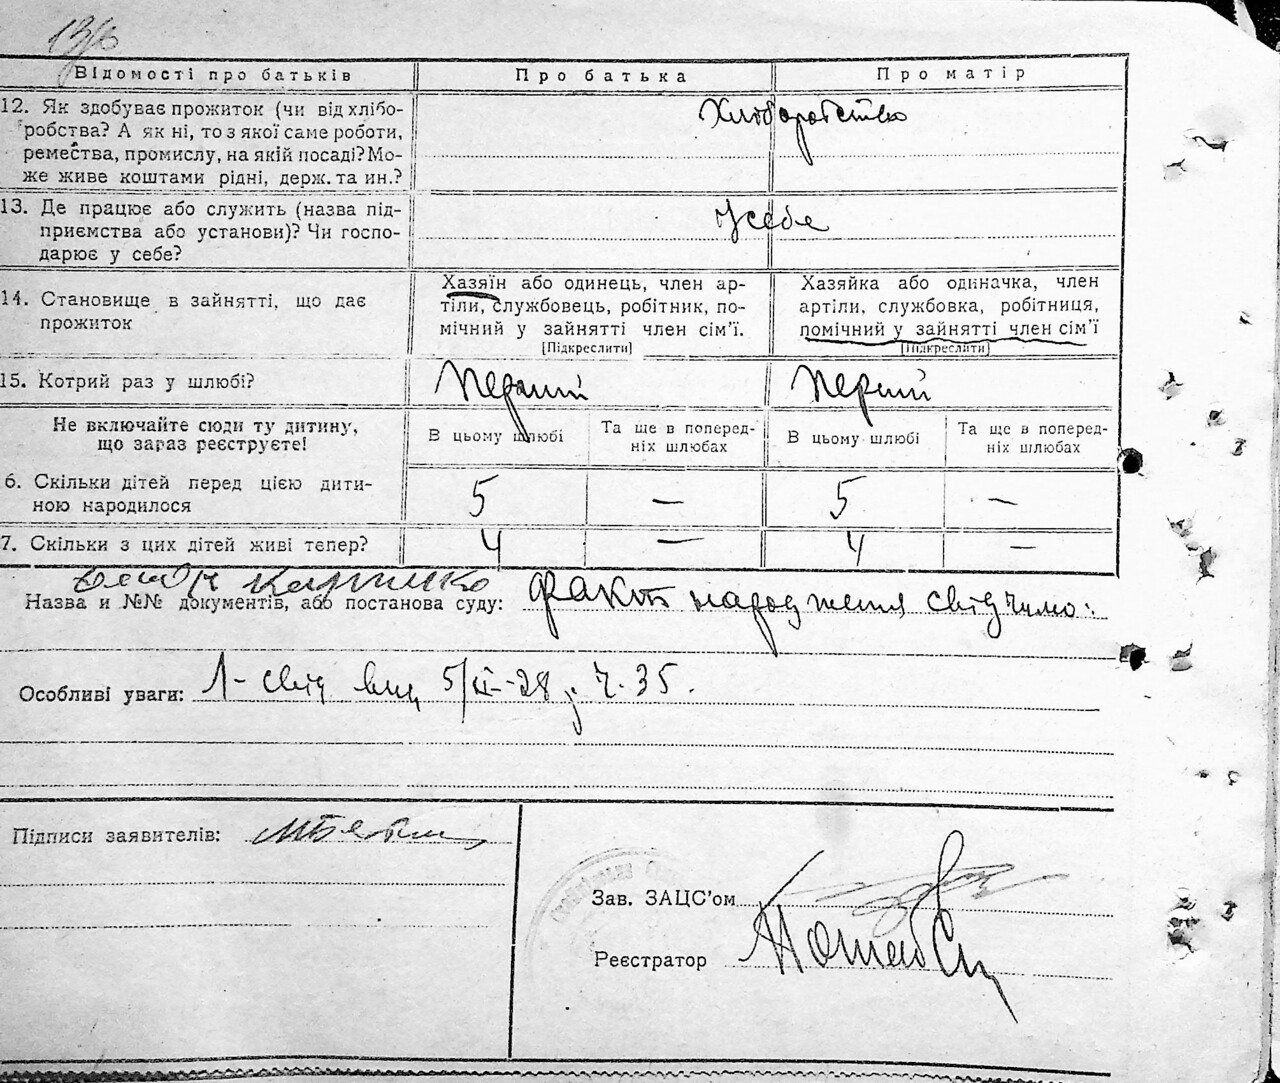 13/6
Відомості про батьків Про батька Про матір
12. Як здобуває прожиток (чи від хлібо-
робства? А як ні, то з якої саме роботи,
ремества, промислу, на якій посаді? Мо-
же живе коштами рідні, держ. та ин.?
Хліборобство
13. Де працює або служить (назва під-
приємства або установи)? Чи госпо-
дарює у себе?
У себе
14. Становище в зайнятті, що дає
прожиток
Хазяїн або одинець, член ар-
тіли, службовець, робітник, по-
мічний у зайнятті член сім'ї.
[Підкреслити]
Хазяйка або одиначка, член
артіли, службовка, робітниця,
помічний у зайнятті член сім'ї
[Підкреслити]
15. Котрий раз у шлюбі? Перший Перший
Не включайте сюди ту дитину,
що зараз реєструєте!
В цьому шлюбі
Та ще в поперед-
ніх шлюбах
В цьому шлюбі
Та ще в поперед-
ніх шлюбах
6. Скільки дітей перед цією дити-
ною народилося
5 — 5 —
7. Скільки з цих дітей живі тепер? 4 — 4 —
Назва и №№ документів, або постанова суду: Факт народження свідчимо:
Особливі уваги: Л-свід вид 5/II-28 р. Ч. 35.
Підписи заявителів:
Зав. ЗАЦС'ом
Реєстратор